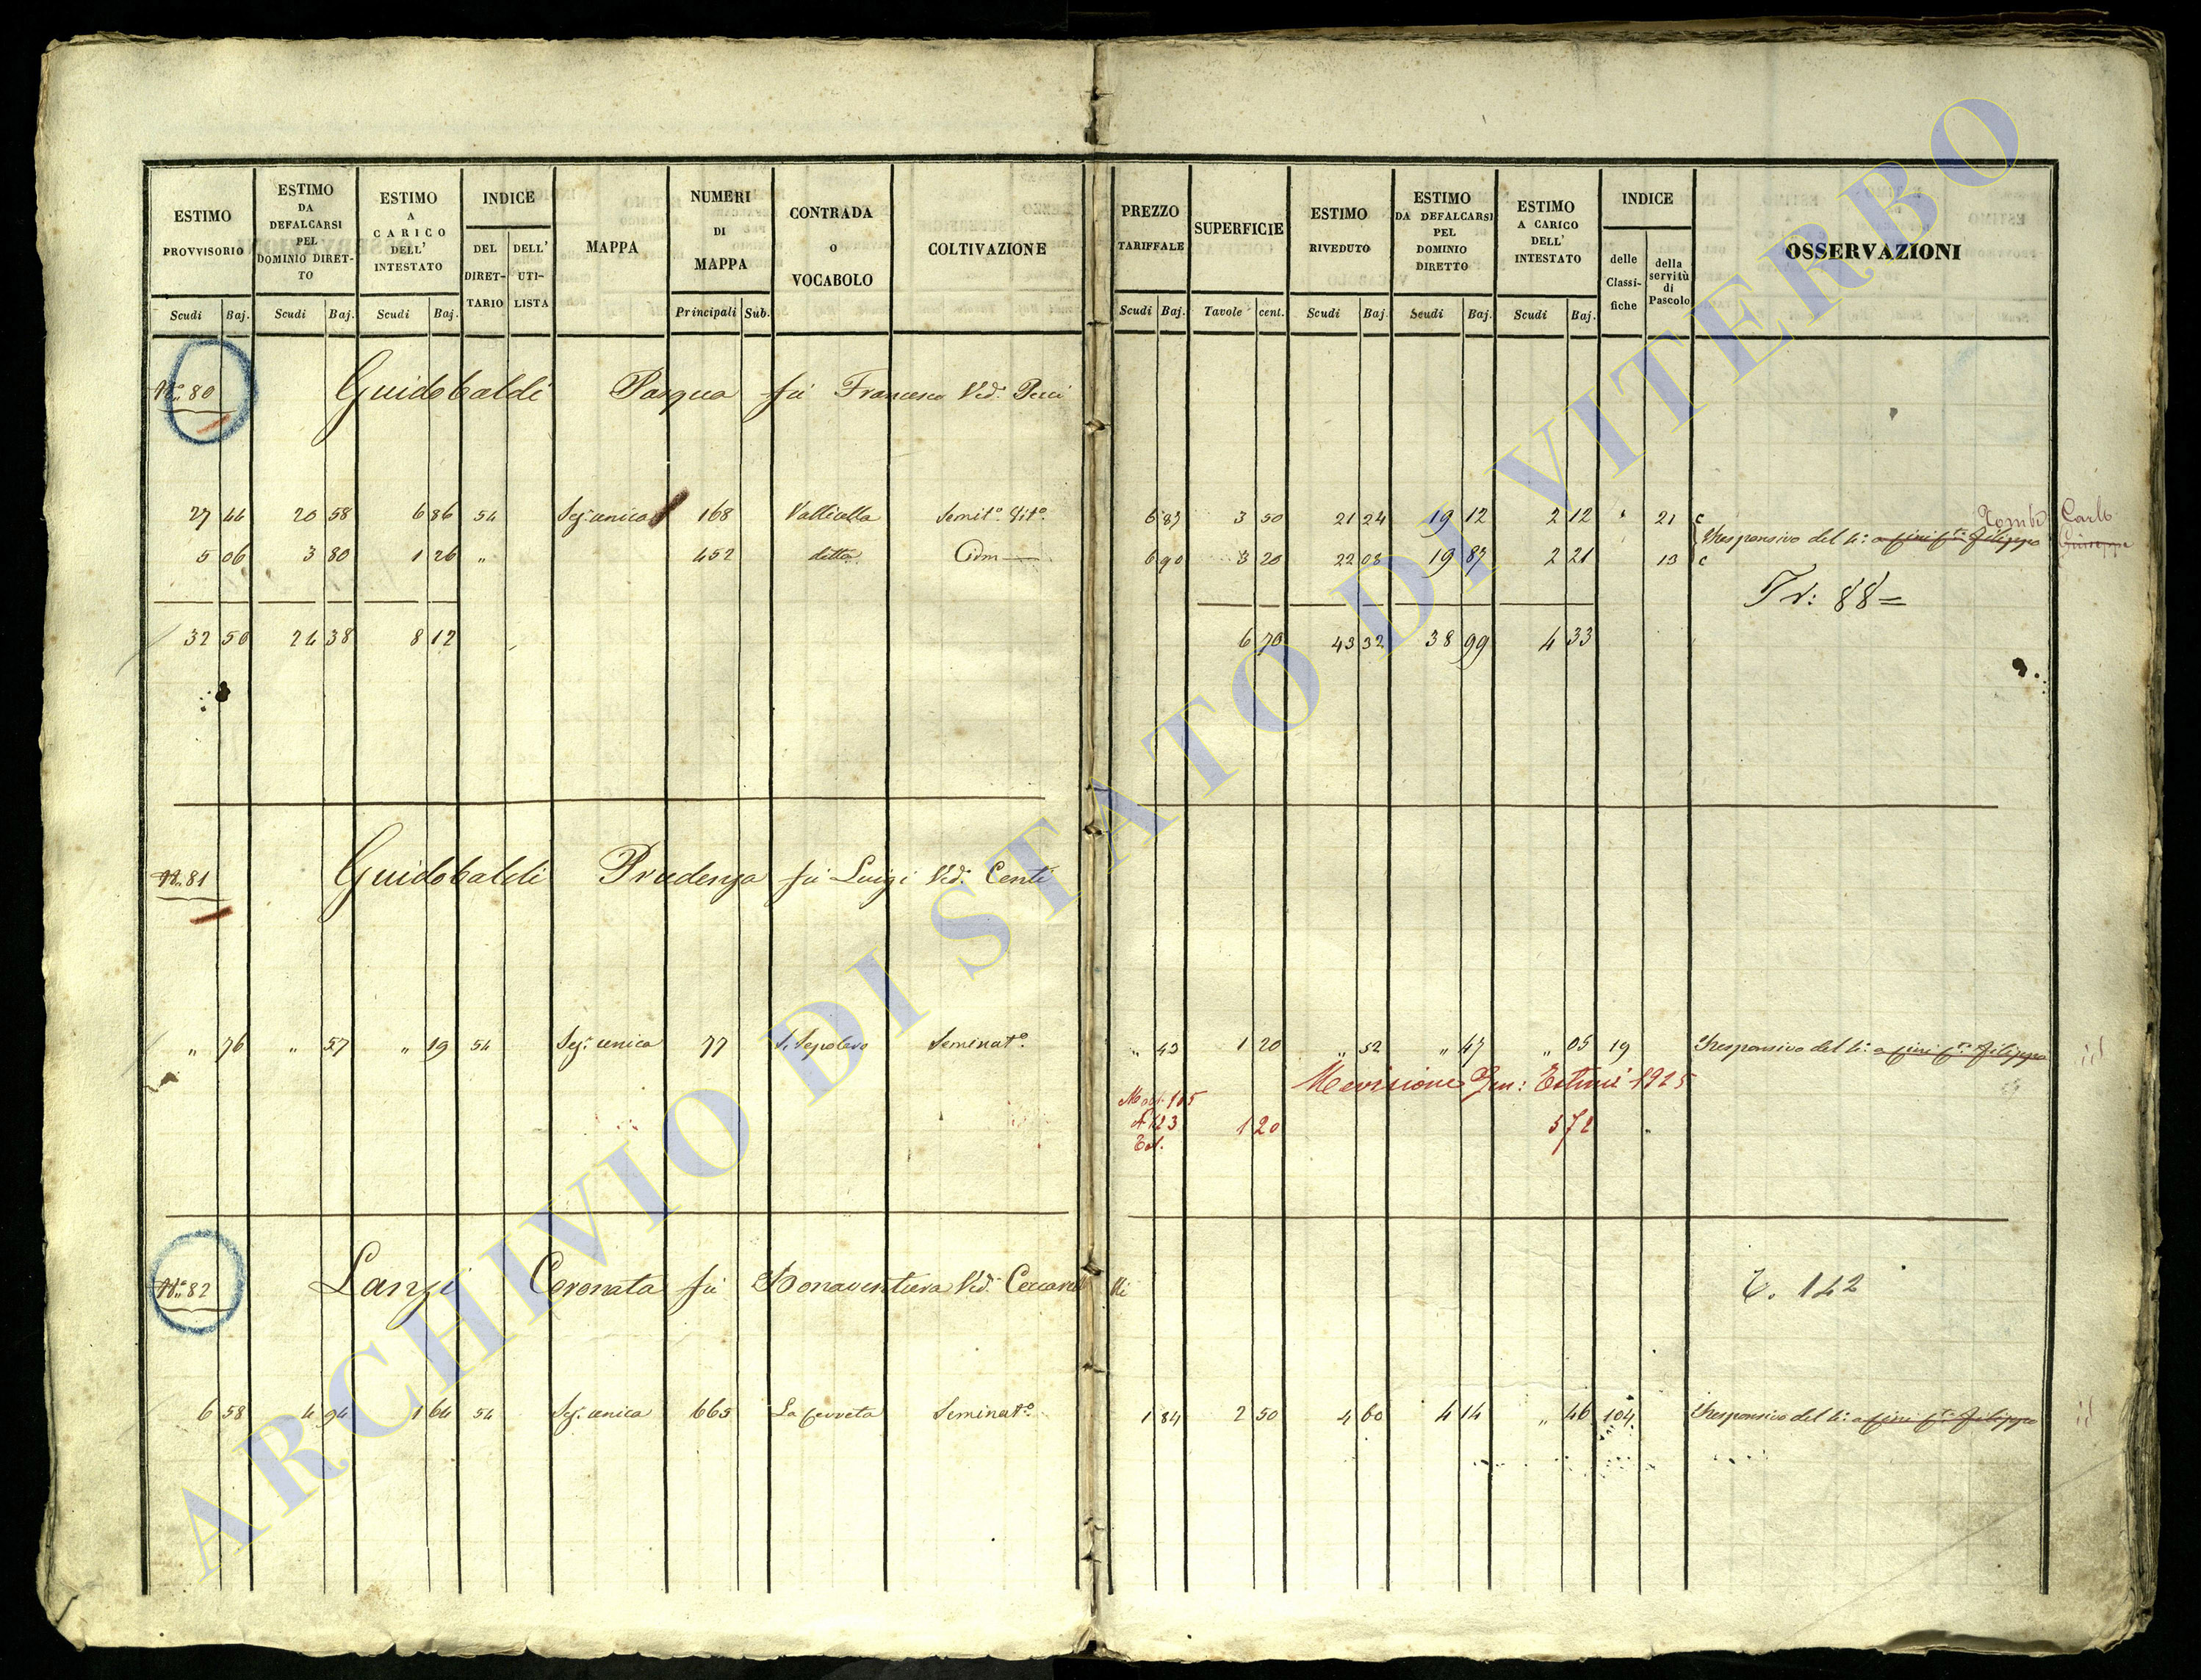 ESTIMO PROVVISORIO Scudi Baj.
ESTIMO DA DEFALCARSI PEL DOMINIO DIRET-TO Scudi Baj.
ESTIMO A CARICO DELL' INTESTATO Scudi Baj.
INDICE DEL DIRET-TARIO DELL' UTI-LISTA
MAPPA
NUMERI DI MAPPA Principali Sub.
CONTRADA o VOCABOLO
COLTIVAZIONE
PREZZO TARIFFALE Scudi Baj.
SUPERFICIE Tavole cent.
ESTIMO RIVEDUTO Scudi Baj.
ESTIMO DA DEFALCARSI PEL DOMINIO DIRETTO Scudi Baj.
ESTIMO A CARICO DELL' INTESTATO Scudi Baj.
INDICE delle Classi-fiche della servitù di Pascolo
OSSERVAZIONI
N.° 80 Guidobaldi Pasqua fu Francesco Ved.
27 44 20 58 6 86 54 Sez. unica 168 Vallicella Semit.° Vit.° 6 87 3 50 21 24 19 12 2 12 " 21 c
Carlo
Responsivo del 4.°
Giuseppe
5 06 3 80 1 26 " 452 ditto Idm 6 90 3 20 22 08 19 87 2 21 13 c
Tr: 88=
32 50 24 38 8 12 6 70 43 32 38 99 4 33
N. 81 Guidobaldi Prudenza fu Luigi Ved. Centi
" 76 " 57 " 19 54 Sez. unica 77 S. Sepolcro Seminat.° " 43 1 20 " 52 " 47 " 05 19 Responsivo del 4.°
Revisione Gen: Estimi 1925
Mod. 105
1 20 5 72
N.° 82 Lanzi Coronata fu Bonaventura Ved. Ceccarelli
T. 142
6 58 4 94 1 64 54 Sez. unica 665 La Cerreta Seminat.° 1 84 2 50 4 60 4 14 " 46 104 Responsivo del 4.°
ARCHIVIO DI STATO DI VITERBO